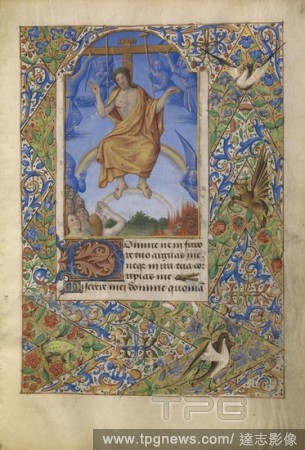 Domine ne in furo
re tuo arguas me
neqꝫ in ira tua cor
ripias me
Miserere mei domine quoniam
TPG
www.tpgnews.com/ 達志影像